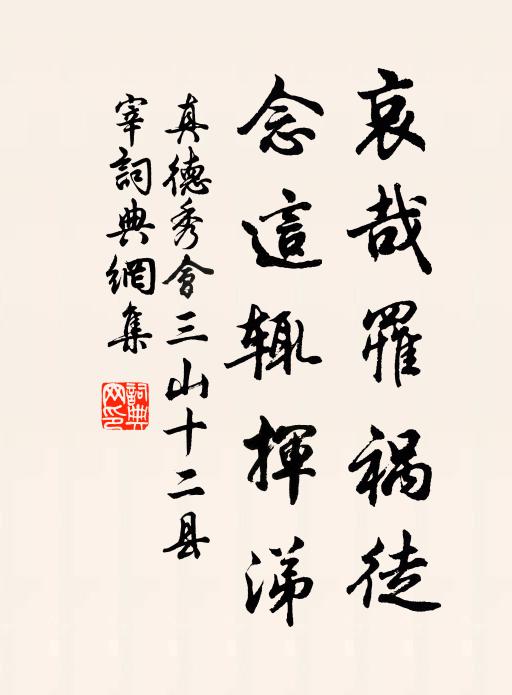 哀哉罹祸徒
念這辄揮涕
真德秀會三山十二县
宰詞典網集
詞典
网印